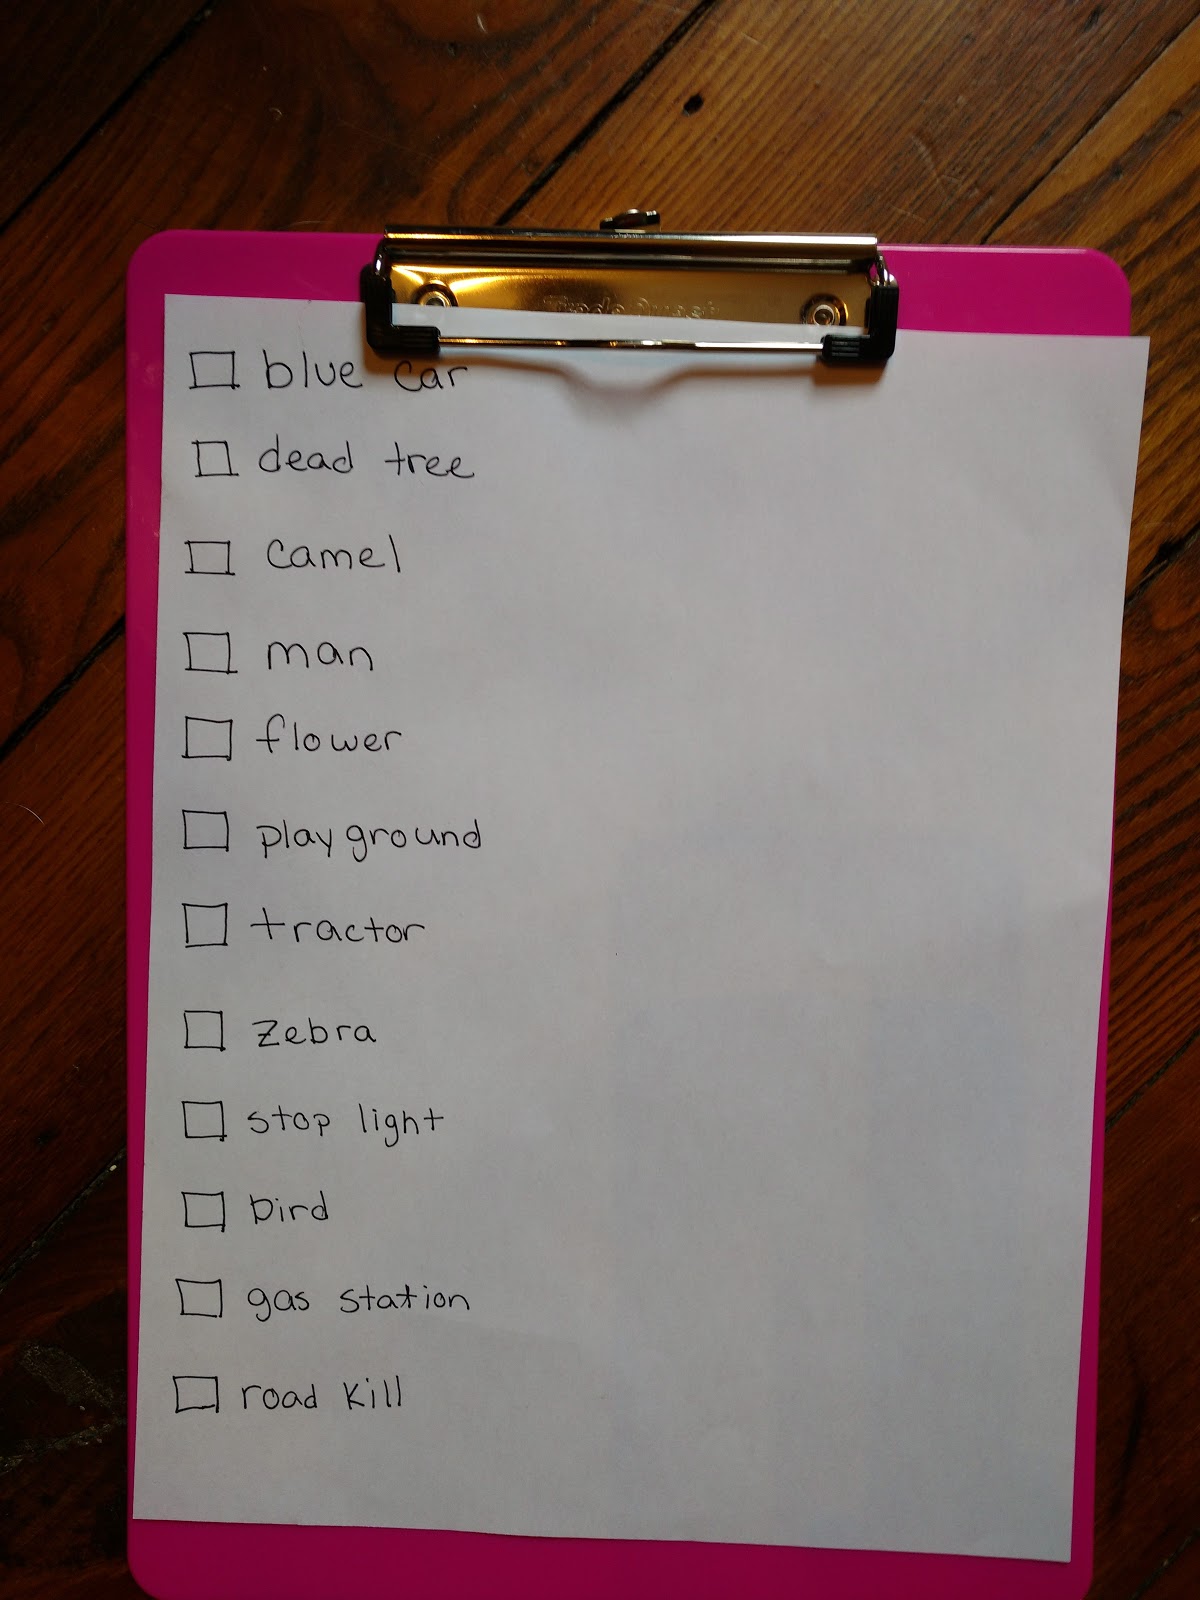 blue car
dead tree
camel
man
flower
playground
tractor
zebra
stop light
bird
gas station
road kill